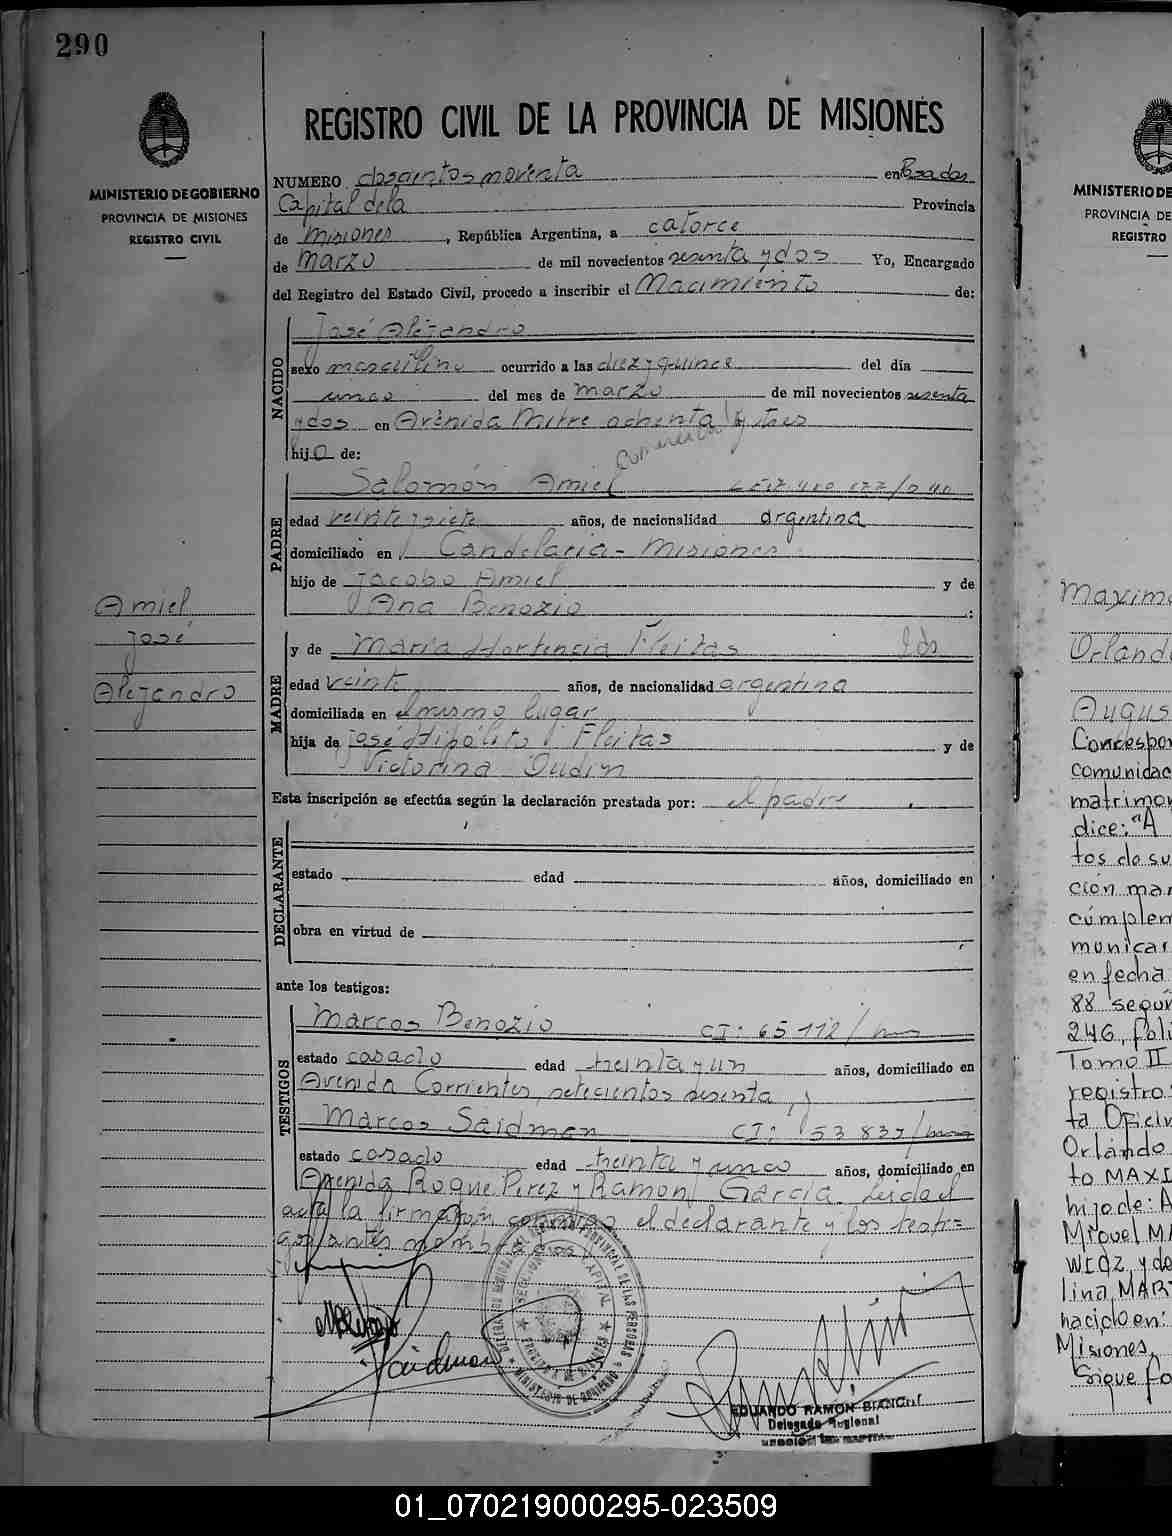 290
MINISTERIO DE GOBIERNO
PROVINCIA DE MISIONES
REGISTRO CIVIL
Amiel
José
Alejandro
REGISTRO CIVIL DE LA PROVINCIA DE MISIONES
NUMERO doscientos noventa en Posadas
Capital de la Provincia
de Misiones, República Argentina, a catorce
de Marzo de mil novecientos sesenta y dos Yo, Encargado
del Registro del Estado Civil, procedo a inscribir el Nacimiento de:
NACIDO
José Alejandro
sexo masculino ocurrido a las diez y quince del día
unco del mes de marzo de mil novecientos sesenta
y dos en Avenida Mitre ochenta y tres
hijo de:
PADRE
Salomón Amiel
edad veintisiete años, de nacionalidad argentina
domiciliado en Candelaria - Misiones
hijo de Jacobo Amiel y de
Ana Benozio
MADRE
y de María Hortencia Fleitas
edad veinte años, de nacionalidad argentina
domiciliada en el mismo lugar
hija de José Hipólito Fleitas y de
Victorina
Esta inscripción se efectúa según la declaración prestada por: el padre
DECLARANTE
estado edad años, domiciliado en
obra en virtud de
ante los testigos:
TESTIGOS
Marcos Benozio CI: 65112
estado casado edad treinta y un años, domiciliado en
Avenida Corrientes setecientos sesenta
Marcos Saidman CI:
estado casado edad treinta y unco años, domiciliado en
Avenida Roque Perez y Ramon Garcia. Leida el
acta la firmaron conmigo el declarante y los testi=
gos antes nombrados
Saidman
EDUARDO RAMON BIANCHI
Delegado Regional
MINISTERIO DE
PROVINCIA DE
REGISTRO
Maxim
Orland
Augus
Correspon
comunidac
matrimon
dice: "A
tos de su
ción mar
cúmplem
municar
en fecha
88 según
246, foli
Tomo II
registro
ta Oficin
Orlando
to MAXI
hijo de: A
Miguel MA
WICZ, y de
lina MAR
nacido en:
Misiones.
Sigue fo
01_070219000295-023509